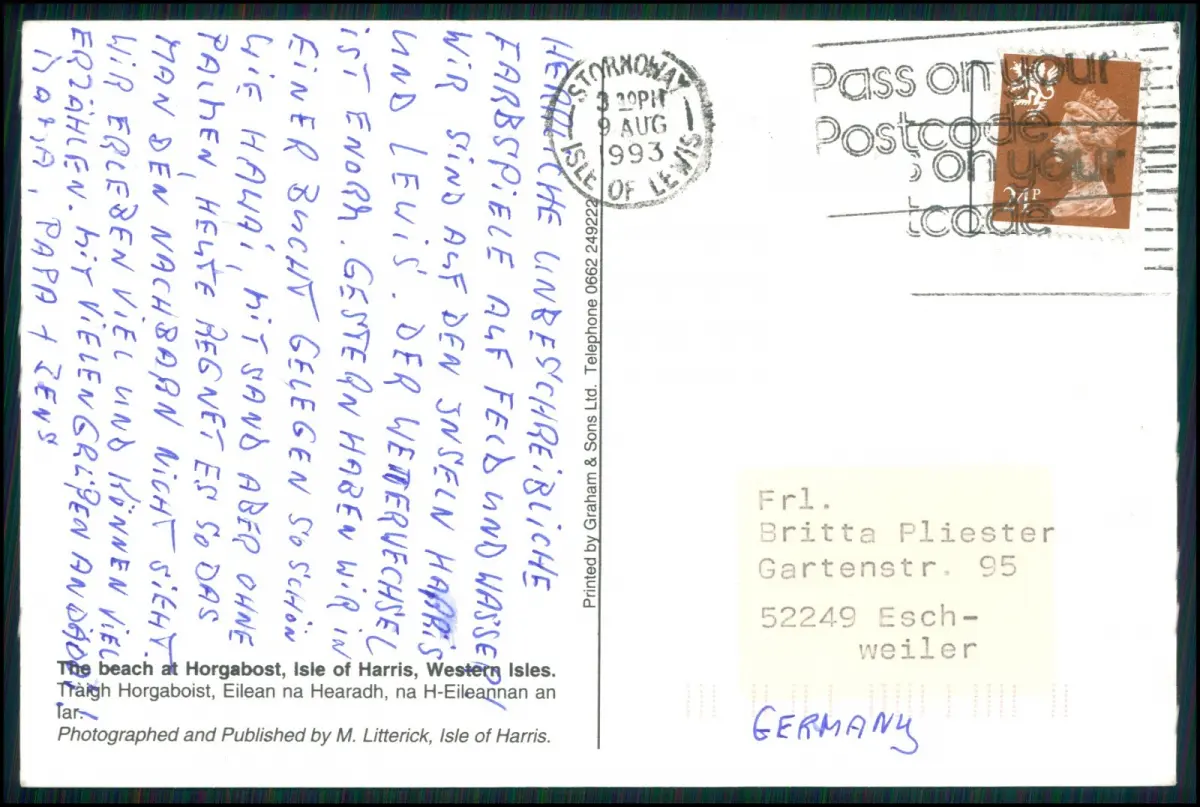 HERRLICHE UNBESCHREIBLICHE
FARBSPIELE AUF FELD UND WASSER!
WIR SIND AUF DEN INSELN HARRIS
UND LEWIS. DER WETTERWECHSEL
IST ENORM. GESTERN HABEN WIR IN
EINER BUCHT GELEGEN SO SCHÖN
WIE HAWAI, MIT SAND ABER OHNE
PALMEN, HEUTE REGNET ES SO DAS
MAN DEN NACHBARN NICHT SIEHT.
WIR ERLEBEN VIEL UND KÖNNEN VIEL
ERZÄHLEN. MIT VIELEN GRÜßEN AN
PAPA + JENS
The beach at Horgabost, Isle of Harris, Western Isles.
Tràigh Horgaboist, Eilean na Hearadh, na H-Eileannan an
Iar.
Photographed and Published by M. Litterick, Isle of Harris.
Printed by Graham & Sons Ltd. Telephone 0662 249222
STORNOWAY
3 30PM
9 AUG
1993
ISLE OF LEWIS
Pass on your
Postcode
s on your
tcode
24P
Frl.
Britta Pliester
Gartenstr. 95
52249 Esch-
weiler
GERMANY